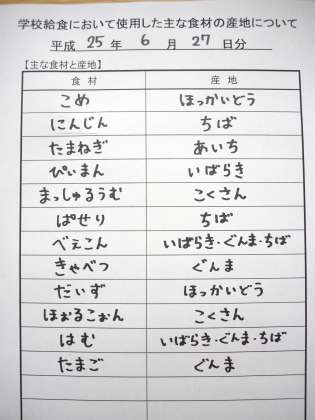 学校給食において使用した主な食材の産地について
平成 25 年 6 月 27 日分
【主な食材と産地】
食材 産地
こめ ほっかいどう
にんじん ちば
たまねぎ あいち
ぴぃまん いばらき
まっしゅるうむ こくさん
ぱせり ちば
べえこん いばらき・ぐんま・ちば
きゃべつ ぐんま
だいず ほっかいどう
ほぉるこぉん こくさん
はむ いばらき・ぐんま・ちば
たまご ぐんま